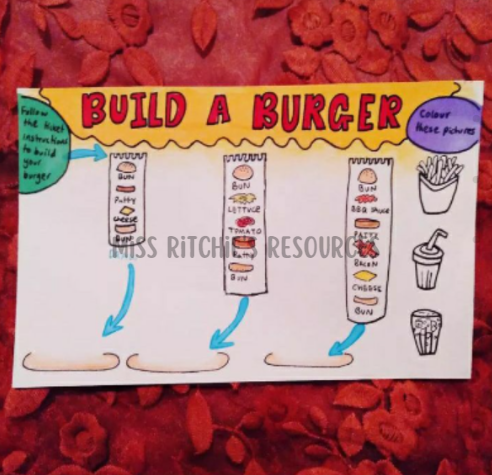 BUILD A BURGER
Follow
the ticket
instructions
to build
your
burger
Colour
these pictures
BUN
Patty
cheese
BUN
BUN
LETTUCE
TOMATO
Patty
BUN
BUN
BBQ SAUCE
PATTY
BACON
CHEESE
BUN
MISS RITCHIE'S RESOURCES